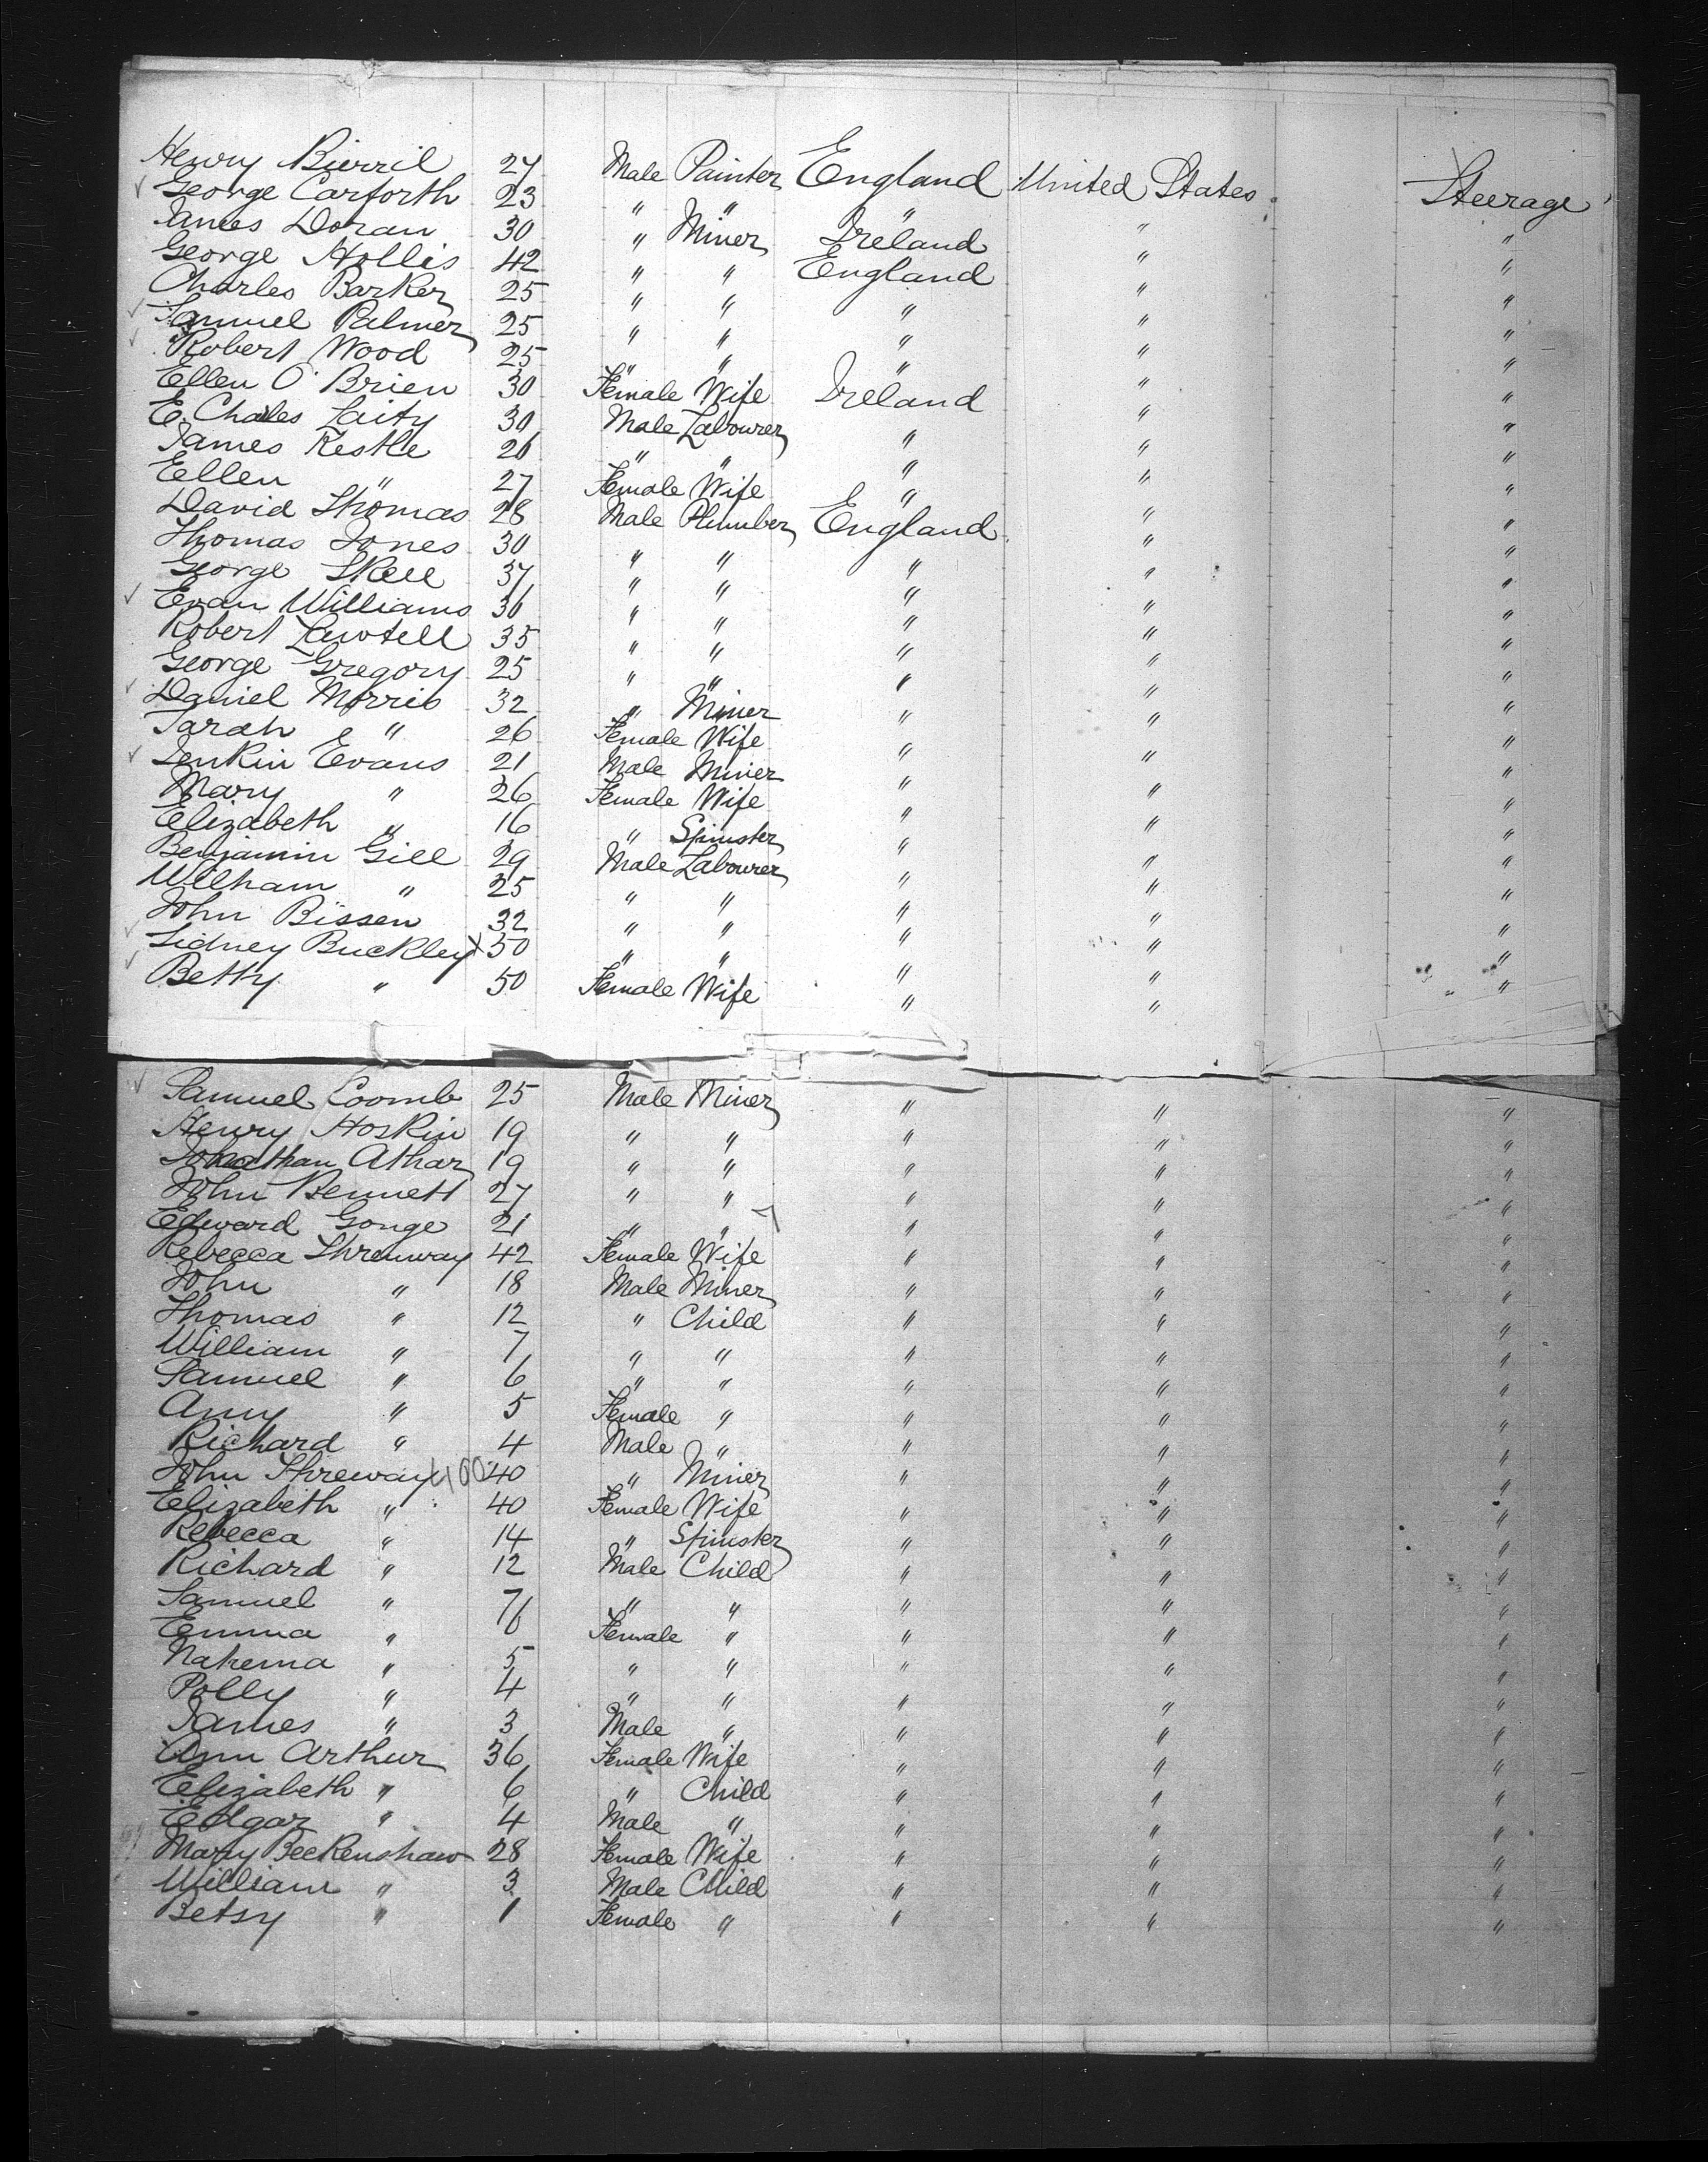 Henry Birril 27 Male Painter England United States Steerage
George Carforth 23 " " " " "
James Doran 30 " Miner Ireland " "
George Hollis 42 " " England " "
Charles Barker 25 " " " " "
Samuel Palmer 25 " " " " "
Robert Wood 25 " " " " "
Ellen O'Brien 30 Female Wife Ireland " "
E. Charles Laity 30 Male Labourer " " "
James Kestle 26 " " " " "
Ellen " 27 Female Wife " " "
David Thomas 28 Male Plumber England " "
Thomas Jones 30 " " " " "
George Skell 37 " " " " "
Evan Williams 36 " " " " "
Robert Lawtell 35 " " " " "
George Gregory 25 " " " " "
Daniel Morris 32 " Miner " " "
Sarah " 26 Female Wife " " "
Jenkin Evans 21 Male Miner " " "
Mary " 26 Female Wife " " "
Elizabeth " 16 " Spinster " " "
Benjamin Gill 29 Male Labourer " " "
William " 25 " " " " "
John Bissen 32 " " " " "
Sidney Buckley x 50 " " " " "
Betty " 50 Female Wife " " "
Samuel Coomb 25 Male Miner " " "
Henry Hoskin 19 " " " " "
Jonathan Athar 19 " " " " "
John Bennett 27 " " " " "
Edward Gonge 21 " " " " "
Rebecca Threnway 42 Female Wife " " "
John " 18 Male Miner " " "
Thomas " 12 " Child " " "
William " 7 " " " " "
Samuel " 6 " " " " "
Amy " 5 Female " " " "
Richard " 4 Male " " " "
John Threway 40 " Miner " " "
Elizabeth " 40 Female Wife " " "
Rebecca " 14 " Spinster " " "
Richard " 12 Male Child " " "
Samuel " 7 " " " " "
Emma " 6 Female " " " "
Nahema " 5 " " " " "
Polly " 4 " " " " "
James " 3 Male " " " "
Ann Arthur 36 Female Wife " " "
Elizabeth " 6 " Child " " "
Edgar " 4 Male " " " "
Mary Beckenshaw 28 Female Wife " " "
William " 3 Male Child " " "
Betsy " 1 Female " " " "